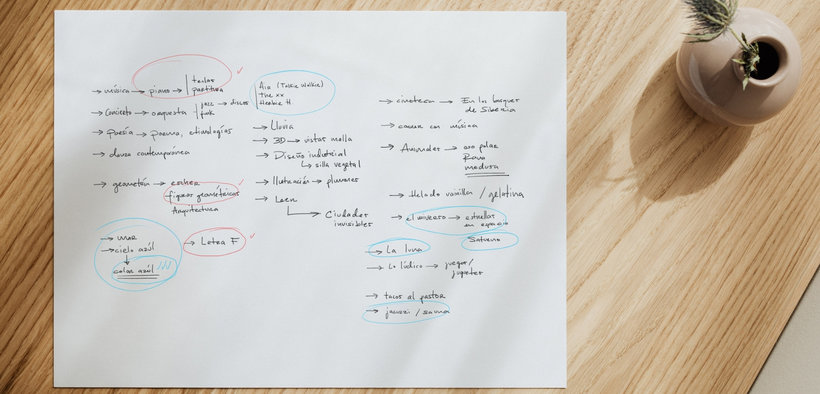 → música → piano → teclas
partitura
→ Concierto → orquesta jazz → discos
funk
→ Poesía → Poema, etimologías
→ danza contemporánea
→ geometría → escher
figuras geométricas
Arquitectura
→ mar
→ cielo azúl
↓
color azúl
→ Letra F
Air (Talkie Walkie)
The xx
Herbie H
→ Lluvia
→ 3D → vistas malla
→ Diseño industrial
↳ silla vegetal
→ Ilustración → plumones
→ Leer
→ Ciudades
invisibles
→ cineteca → En los bosques
de Siberia
→ comer con música
→ Animales → oso polar
Rana
medusa
→ Helado vainilla / gelatina
→ el universo → estrellas
en espacio
Saturno
→ La luna
→ Lo lúdico → juegos /
juguetes
→ tacos al pastor
→ jacuzzi / sauna